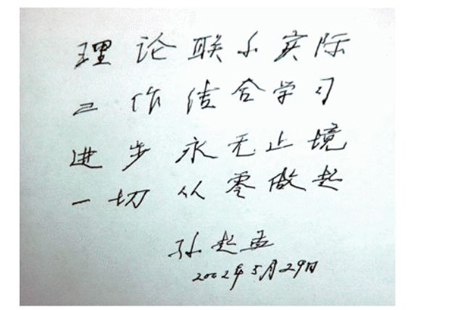 理论联系实际
工作结合学习
进步永无止境
一切从零做起
孙起孟
2002年5月29日